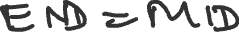 END = MID